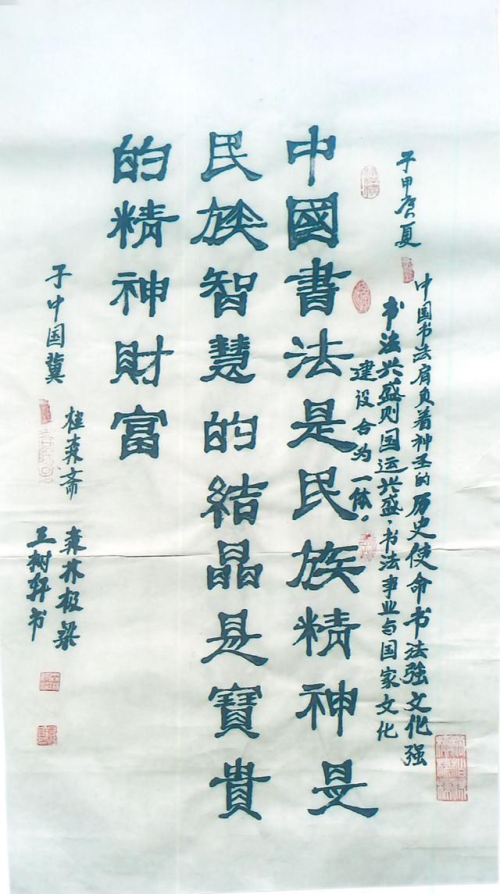 夏
中国书法肩负着神圣的历史使命书法强文化强
书法兴盛则国运兴盛，书法事业与国家文化
建设合为一体。
中國書法是民族精神是
民族智慧的結晶是寶貴
的精神財富
于中国冀
森斋
森林
王树轩书